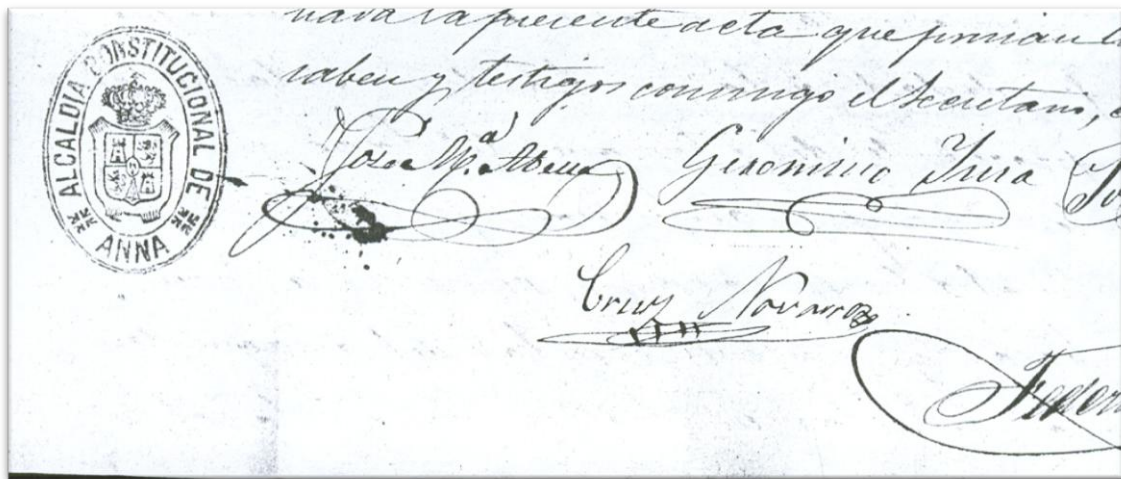 ALCALDIA CONSTITUCIONAL DE ANNA
la presente acta que firman
saben y testigos conmigo el Secretario,
Jose Mª
Geronimo
Cruz Navarro